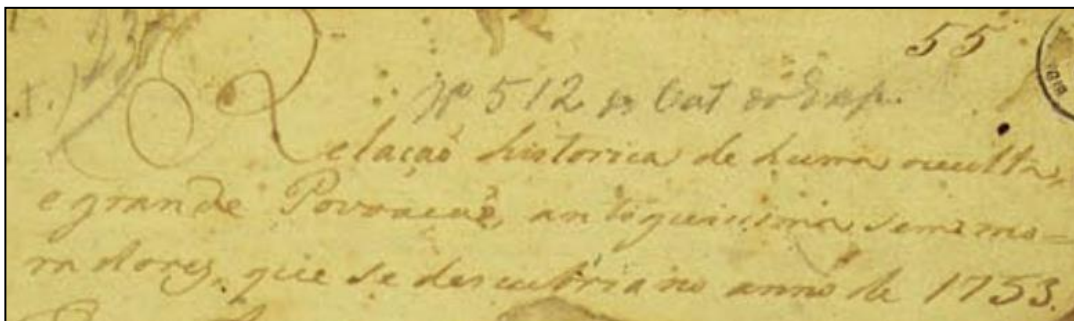 55
Nº 512 do Cat da Exp.
Relaçaõ historica de huma occulta,
e grande Povoacaõ, antiguissima sem mo=
radores, que se descubriu no anno de 1753.